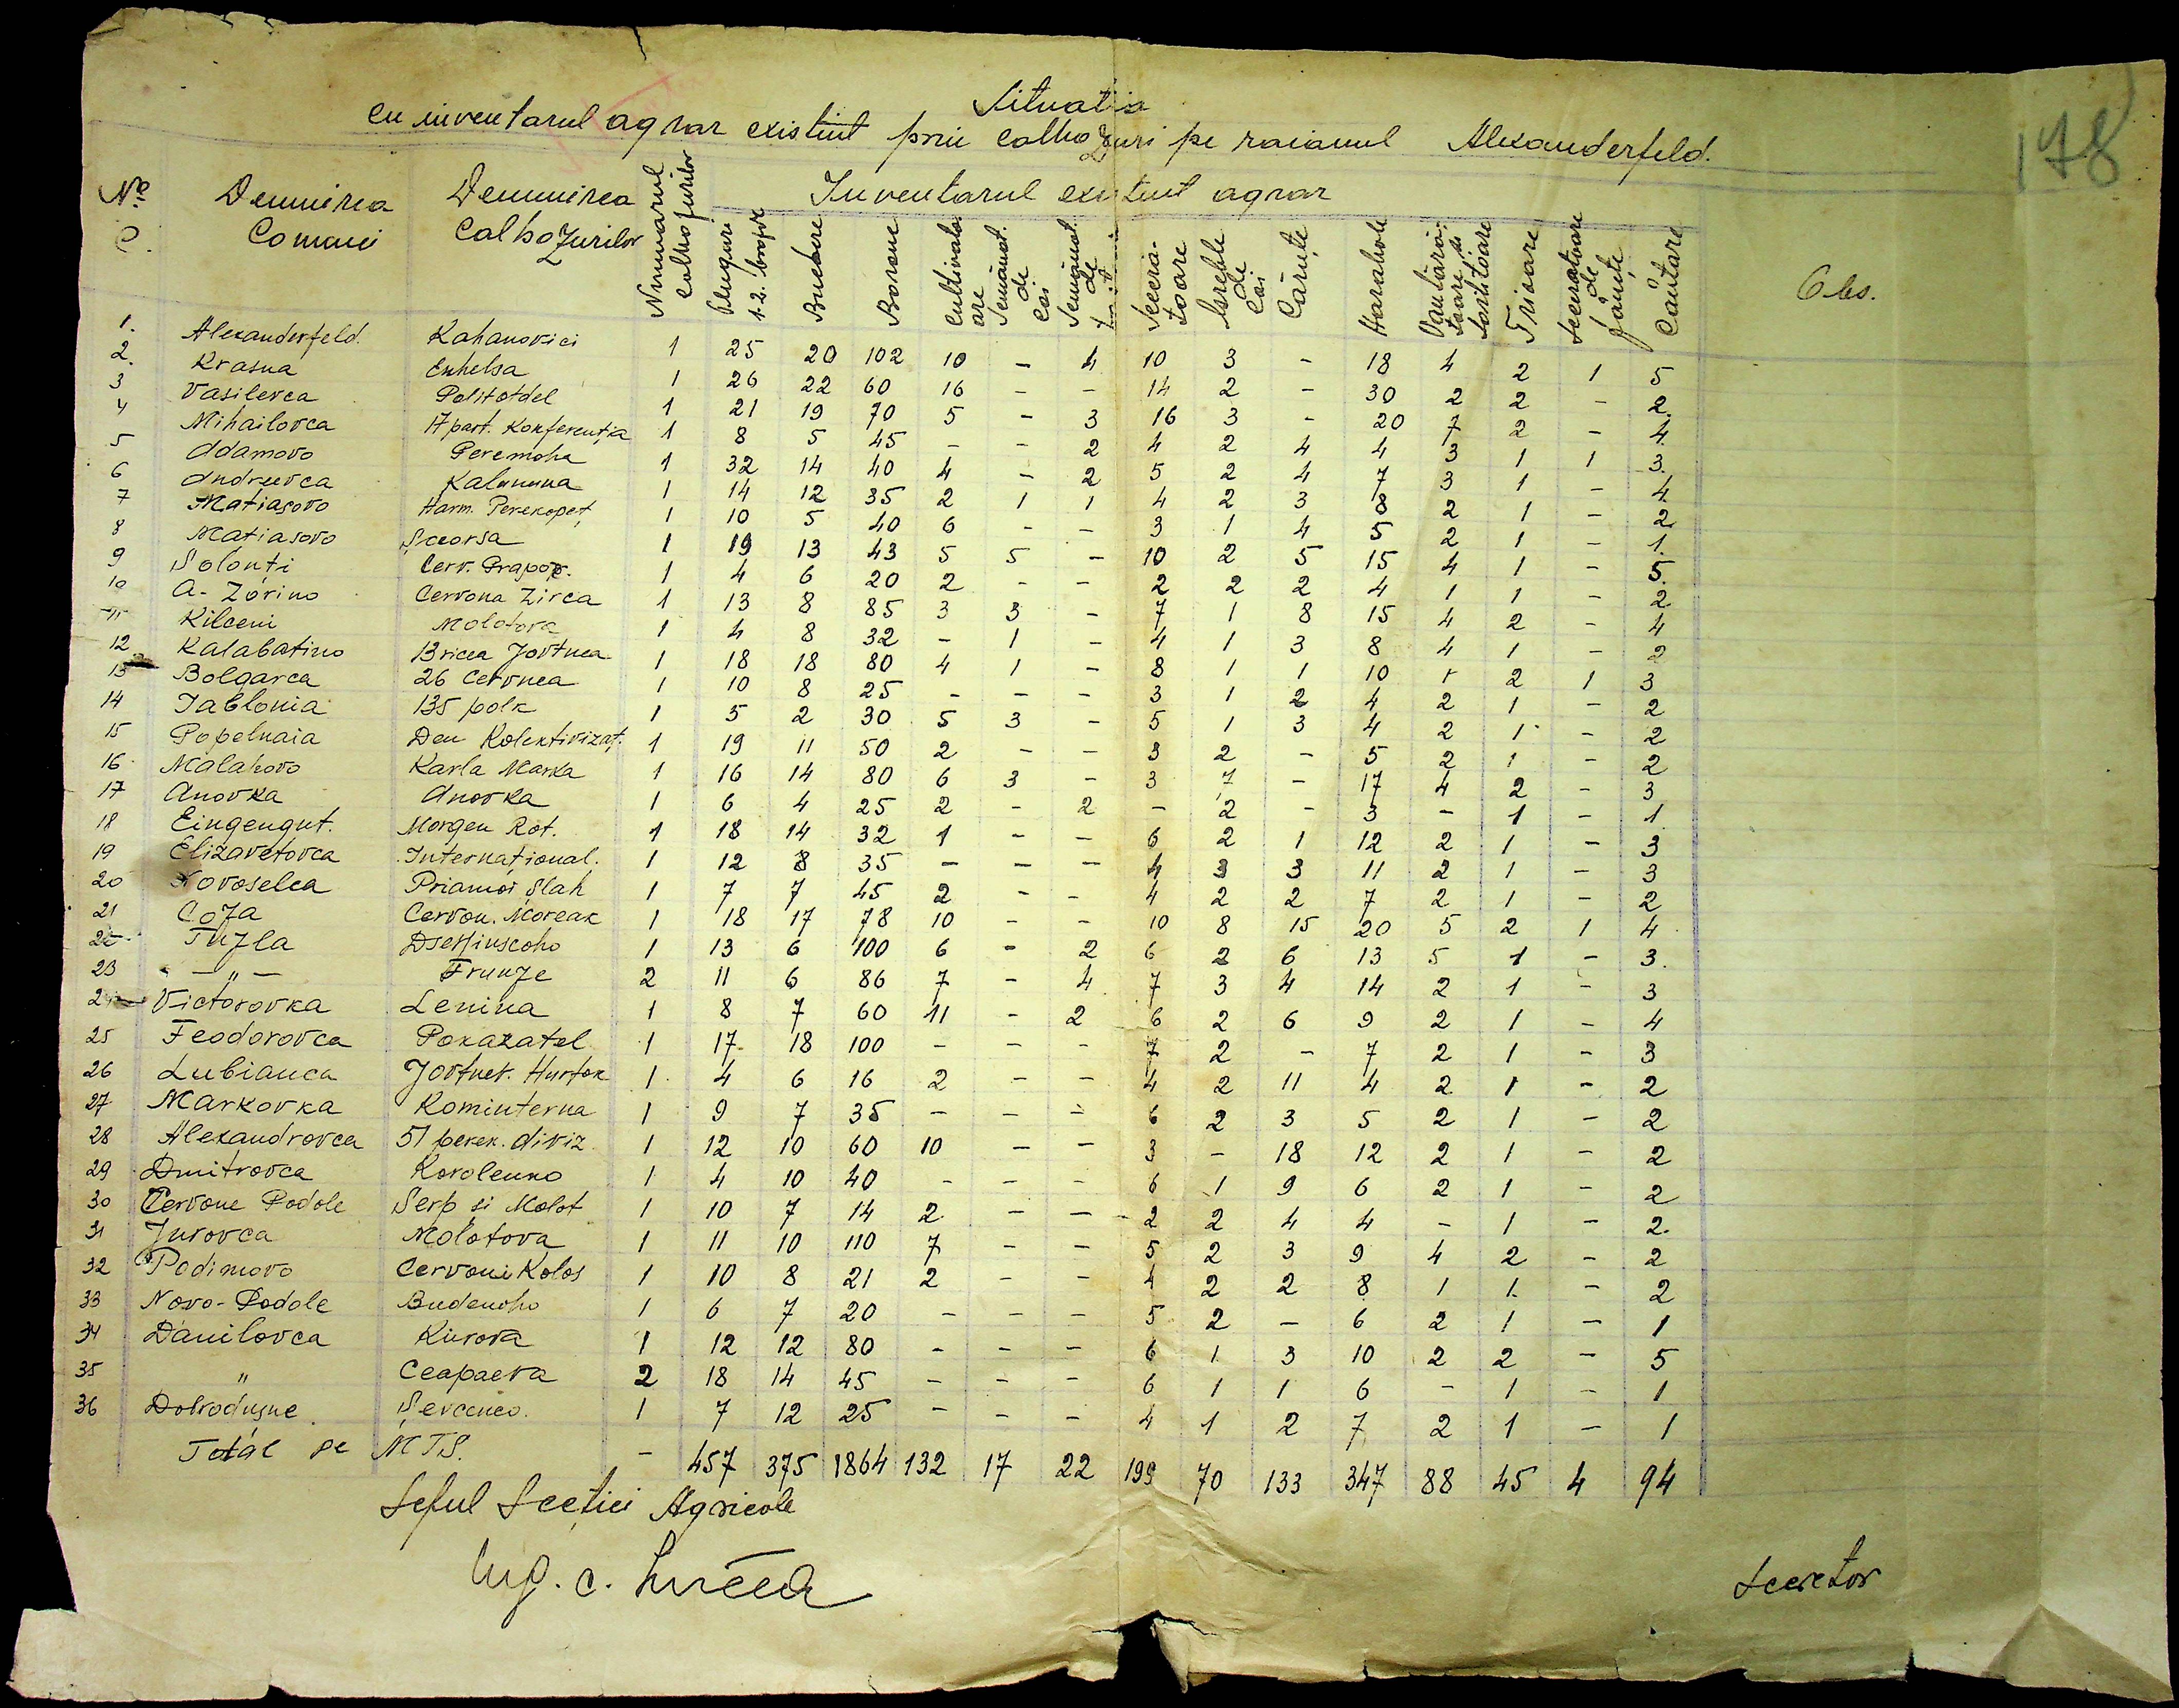 178
Situatia
cu inventarul agrar existint prin colhozuri pe raionul Alexanderfeld.
No C. Denumirea Comunei Denumirea Colhozurilor Numarul Colhozurilor Inventarul existint agrar Obs.
Pluguri 1-2. brazde Bucare Borone Cultivatoare Semănat. de cai Semănat. de Seceratoare Greble de Cai Căruțe Harabale Vanturatoare Trioare Seceratoare de fanețe Cantare
1. Alexanderfeld. Kahanovici 1 25 20 102 10 - 4 10 3 - 18 4 2 1 5
2. Krasna Enhelsa 1 26 22 60 16 - - 14 2 - 30 2 2 - 2
3 Vasilevca Politotdel 1 21 19 70 5 - 3 16 3 - 20 7 2 - 4
4 Mihailovca 17 part. Konferentia 1 8 5 45 - - 2 4 2 4 4 3 1 1 3.
5 Adamovo Peremoha 1 32 14 40 4 - 2 5 2 4 7 3 1 - 4
6 Andreevca Kalinina 1 14 12 35 2 1 1 4 2 3 8 2 1 - 2
7 Matiasovo Harm. Perekopet 1 10 5 40 6 - - 3 1 4 5 2 1 - 1.
8 Matiasovo Șceorsa 1 19 13 43 5 5 - 10 2 5 15 4 1 - 5.
9 Solonti Cerv. Prapor. 1 4 6 20 2 - - 2 2 2 4 1 1 - 2
10 A. Zorino Cervona Zirca 1 13 8 85 3 3 - 7 1 8 15 4 2 - 4
11 Kilceni Molotova 1 4 8 32 - 1 - 4 1 3 8 4 1 - 2
12 Kalabatino 13 ricea Jovtnea 1 18 18 80 4 1 - 8 1 1 10 2 1 3
13 Bolgarca 26 Cervnea 1 10 8 25 - - - 3 1 2 4 2 1 - 2
14 Iablonia 135 polk 1 5 2 30 5 3 - 5 1 3 4 2 1 - 2
15 Popelnaia Den Kolektivizaț. 1 19 11 50 2 - - 3 2 - 5 2 1 - 2
16 Malahovo Karla Marxa 1 16 14 80 6 3 - 3 7 - 17 4 2 - 3
17 Anovka Anovka 1 6 4 25 2 - 2 - 2 - 3 - 1 - 1
18 Eingengut. Morgen Rot. 1 18 14 32 1 - - 6 2 1 12 2 1 - 3
19 Elizavetovca Internațional. 1 12 8 35 - - - 4 3 3 11 2 1 - 3
20 Novoselca Priamoi Șlah 1 7 7 45 2 - - 4 2 2 7 2 1 - 2
21 Coza Cervon. Moreak 1 18 17 78 10 - - 10 8 15 20 5 2 1 4
22 Tuzla Dserjinscoho 1 13 6 100 6 - 2 6 2 6 13 5 1 - 3.
23 - " - Frunze 2 11 6 86 7 - 4 7 3 4 14 2 1 - 3
24 Victorovka Lenina 1 8 7 60 11 - 2 6 2 6 9 2 1 - 4
25 Feodorovca Pokazatel 1 17 18 100 - - - 7 2 - 7 2 1 - 3
26 Lubianca Jovtnev. Hurtok 1 4 6 16 2 - - 4 2 11 4 2 1 - 2
27 Markovka Kominterna 1 9 7 35 - - - 6 2 3 5 2 1 - 2
28 Alexandrovca 51 perek. diviz 1 12 10 60 10 - - 3 - 18 12 2 1 - 2
29 Dmitrovca Korolenko 1 4 10 40 - - - 6 1 9 6 2 1 - 2
30 Cervone Podole Serp si Molot 1 10 7 14 2 - - 2 2 4 4 - 1 - 2.
31 Jurovca Molotova 1 11 10 110 7 - - 5 2 3 9 4 2 - 2
32 Podimovo Cervoni Kolos 1 10 8 21 2 - - 4 2 2 8 1 1 - 2
33 Novo-Podole Budenoho 1 6 7 20 - - - 5 2 - 6 2 1 - 1
34 Danilovca Kirova 1 12 12 80 - - - 6 1 3 10 2 2 - 5
35 " Ceapaeva 2 18 14 45 - - - 6 1 1 6 - 1 - 1
36 Dobrodușne Șevcenco. 1 7 12 25 - - - 4 1 2 7 2 1 - 1
Total pe M.T.S. - 457 375 1864 132 17 22 199 70 133 347 88 45 4 94
Seful Secției Agricole
Ing. C.
Secretor